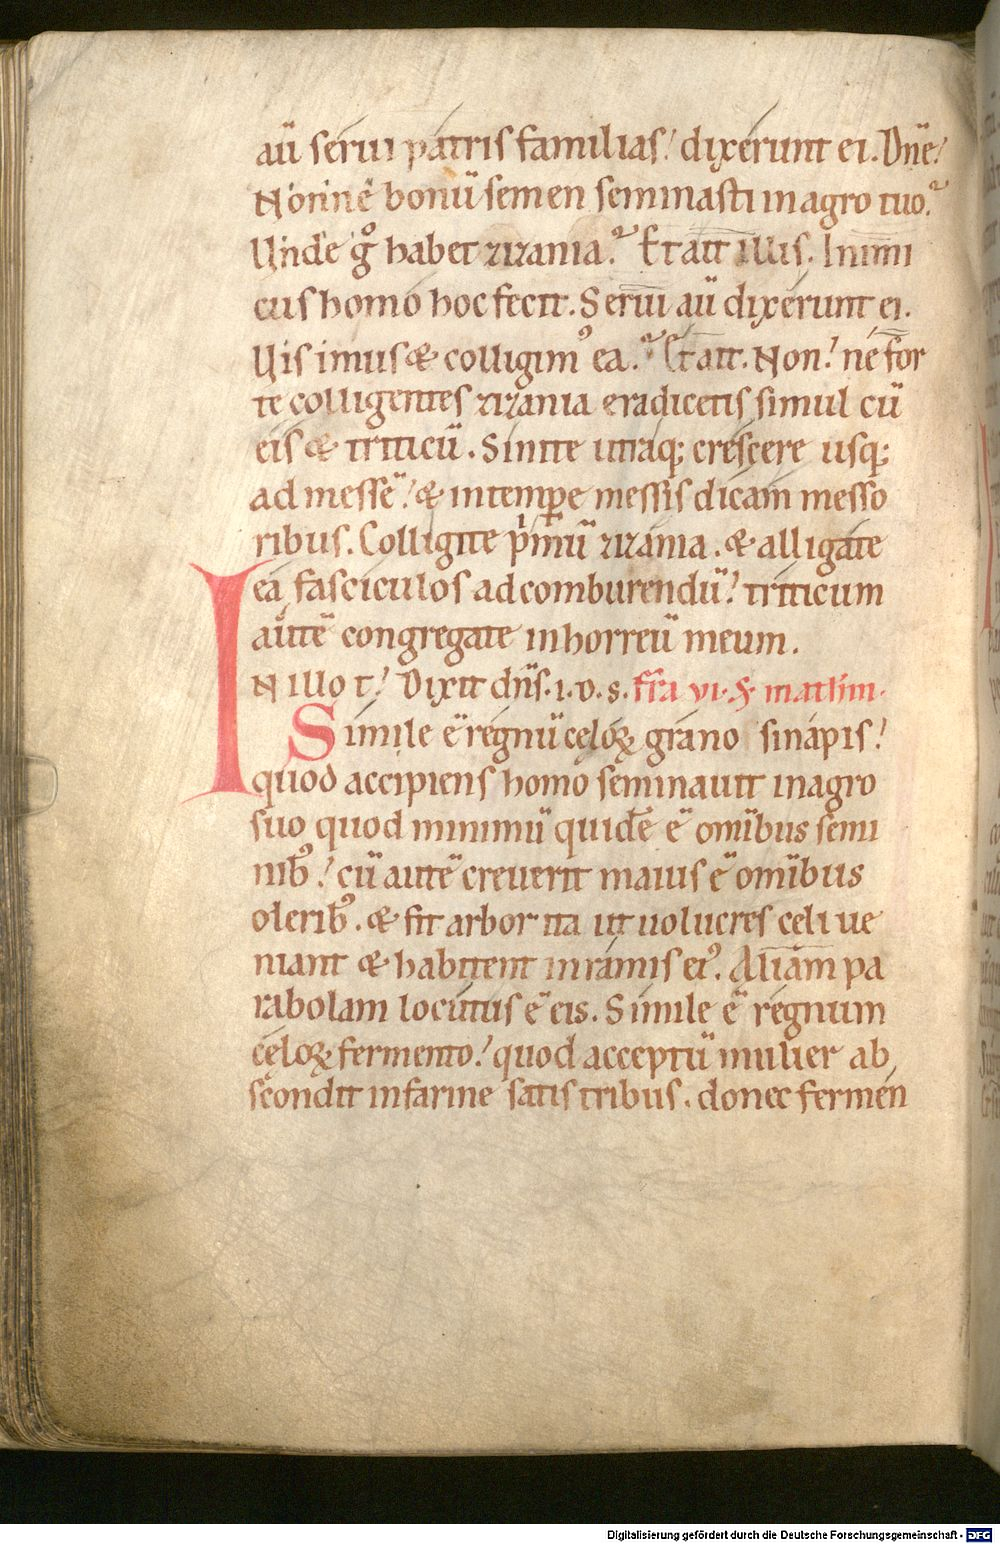 aū serui patris familias. dixerunt ei. Dn̄e.
Nonne bonū semen seminasti in agro tuo.
Unde gͦ habet zizania. Et ait illis. Inimi
cus homo hoc fecit. Serui aū dixerunt ei.
Uis imus & colligimꝰ ea. Et ait. Non. ne for
te colligentes zizania eradicetis simul cū
eis & triticū. Sinite utraq; crescere usq;
ad messē. & in tempꝑe messis dicam messo
ribus. Colligite pⁱmū zizania. & alligate
ea fasciculos ad comburendū. triticum
autē congregate in horreū meum.
IN illo t. Dixit dn̄s. i. d. s. fr̄a vi. s̄. mathm̄.
Simile ē regnū cęloꝝ grano sinapis.
quod accipiens homo seminauit in agro
suo quod minimū quidē ē om̄ibus semi
nibꝰ. cū autē creuerit maius ē om̄ibus
oleribꝰ. & fit arbor ita ut uolucres celi ue
niant & habitent in ramis eiꝰ. Aliam pa
rabolam locutus ē eis. Simile ē regnum
cęloꝝ fermento. quod acceptū mulier ab
scondit in farine satis tribus. donec fermen
Digitalisierung gefördert durch die Deutsche Forschungsgemeinschaft - DFG